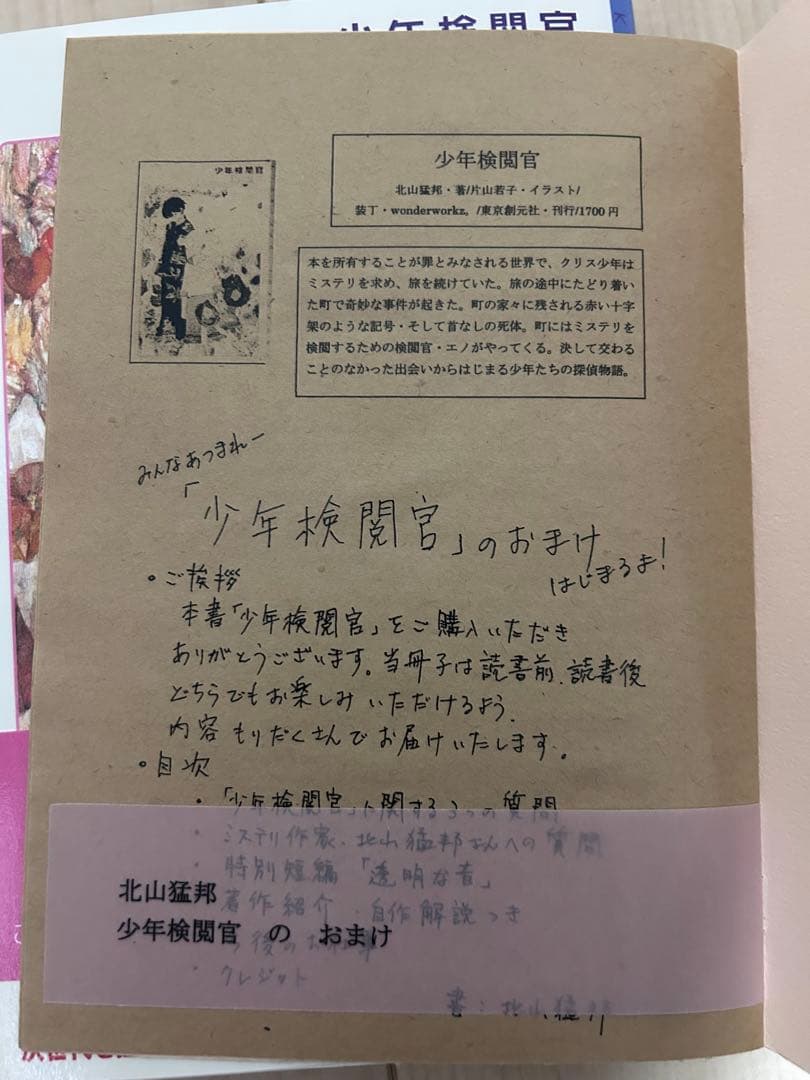 少年検閲官
少年検閲官
少年検閲官
北山猛邦・著/片山若子・イラスト/
装丁・wonderworkz。/東京創元社・刊行/1700円
本を所有することが罪とみなされる世界で、クリス少年は
ミステリを求め、旅を続けていた。旅の途中にたどり着い
た町で奇妙な事件が起きた。町の家々に残される赤い十字
架のような記号・そして首なしの死体。町にはミステリを
検閲するための検閲官・エノがやってくる。決して交わる
ことのなかった出会いからはじまる少年たちの探偵物語。
みんなあつまれー
「少年検閲官」のおまけ
はじまるよ!
・ご挨拶
本書「少年検閲官」をご購入いただき
ありがとうございます。当冊子は読書前、読書後
どちらでもお楽しみいただけるよう、
内容もりだくさんでお届けいたします。
・目次
・「少年検閲官」に関する3つの質問
・ミステリ作家・北山猛邦さんへの質問
・特別短編「透明な音」
・著作紹介・自作解説つき
後のお
・クレジット
書:北山猛邦
北山猛邦
少年検閲官 の おまけ